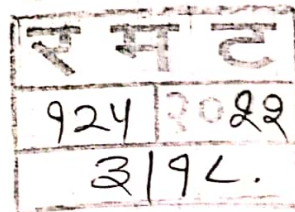 र म ट
१२५ २०२२
३|१८.